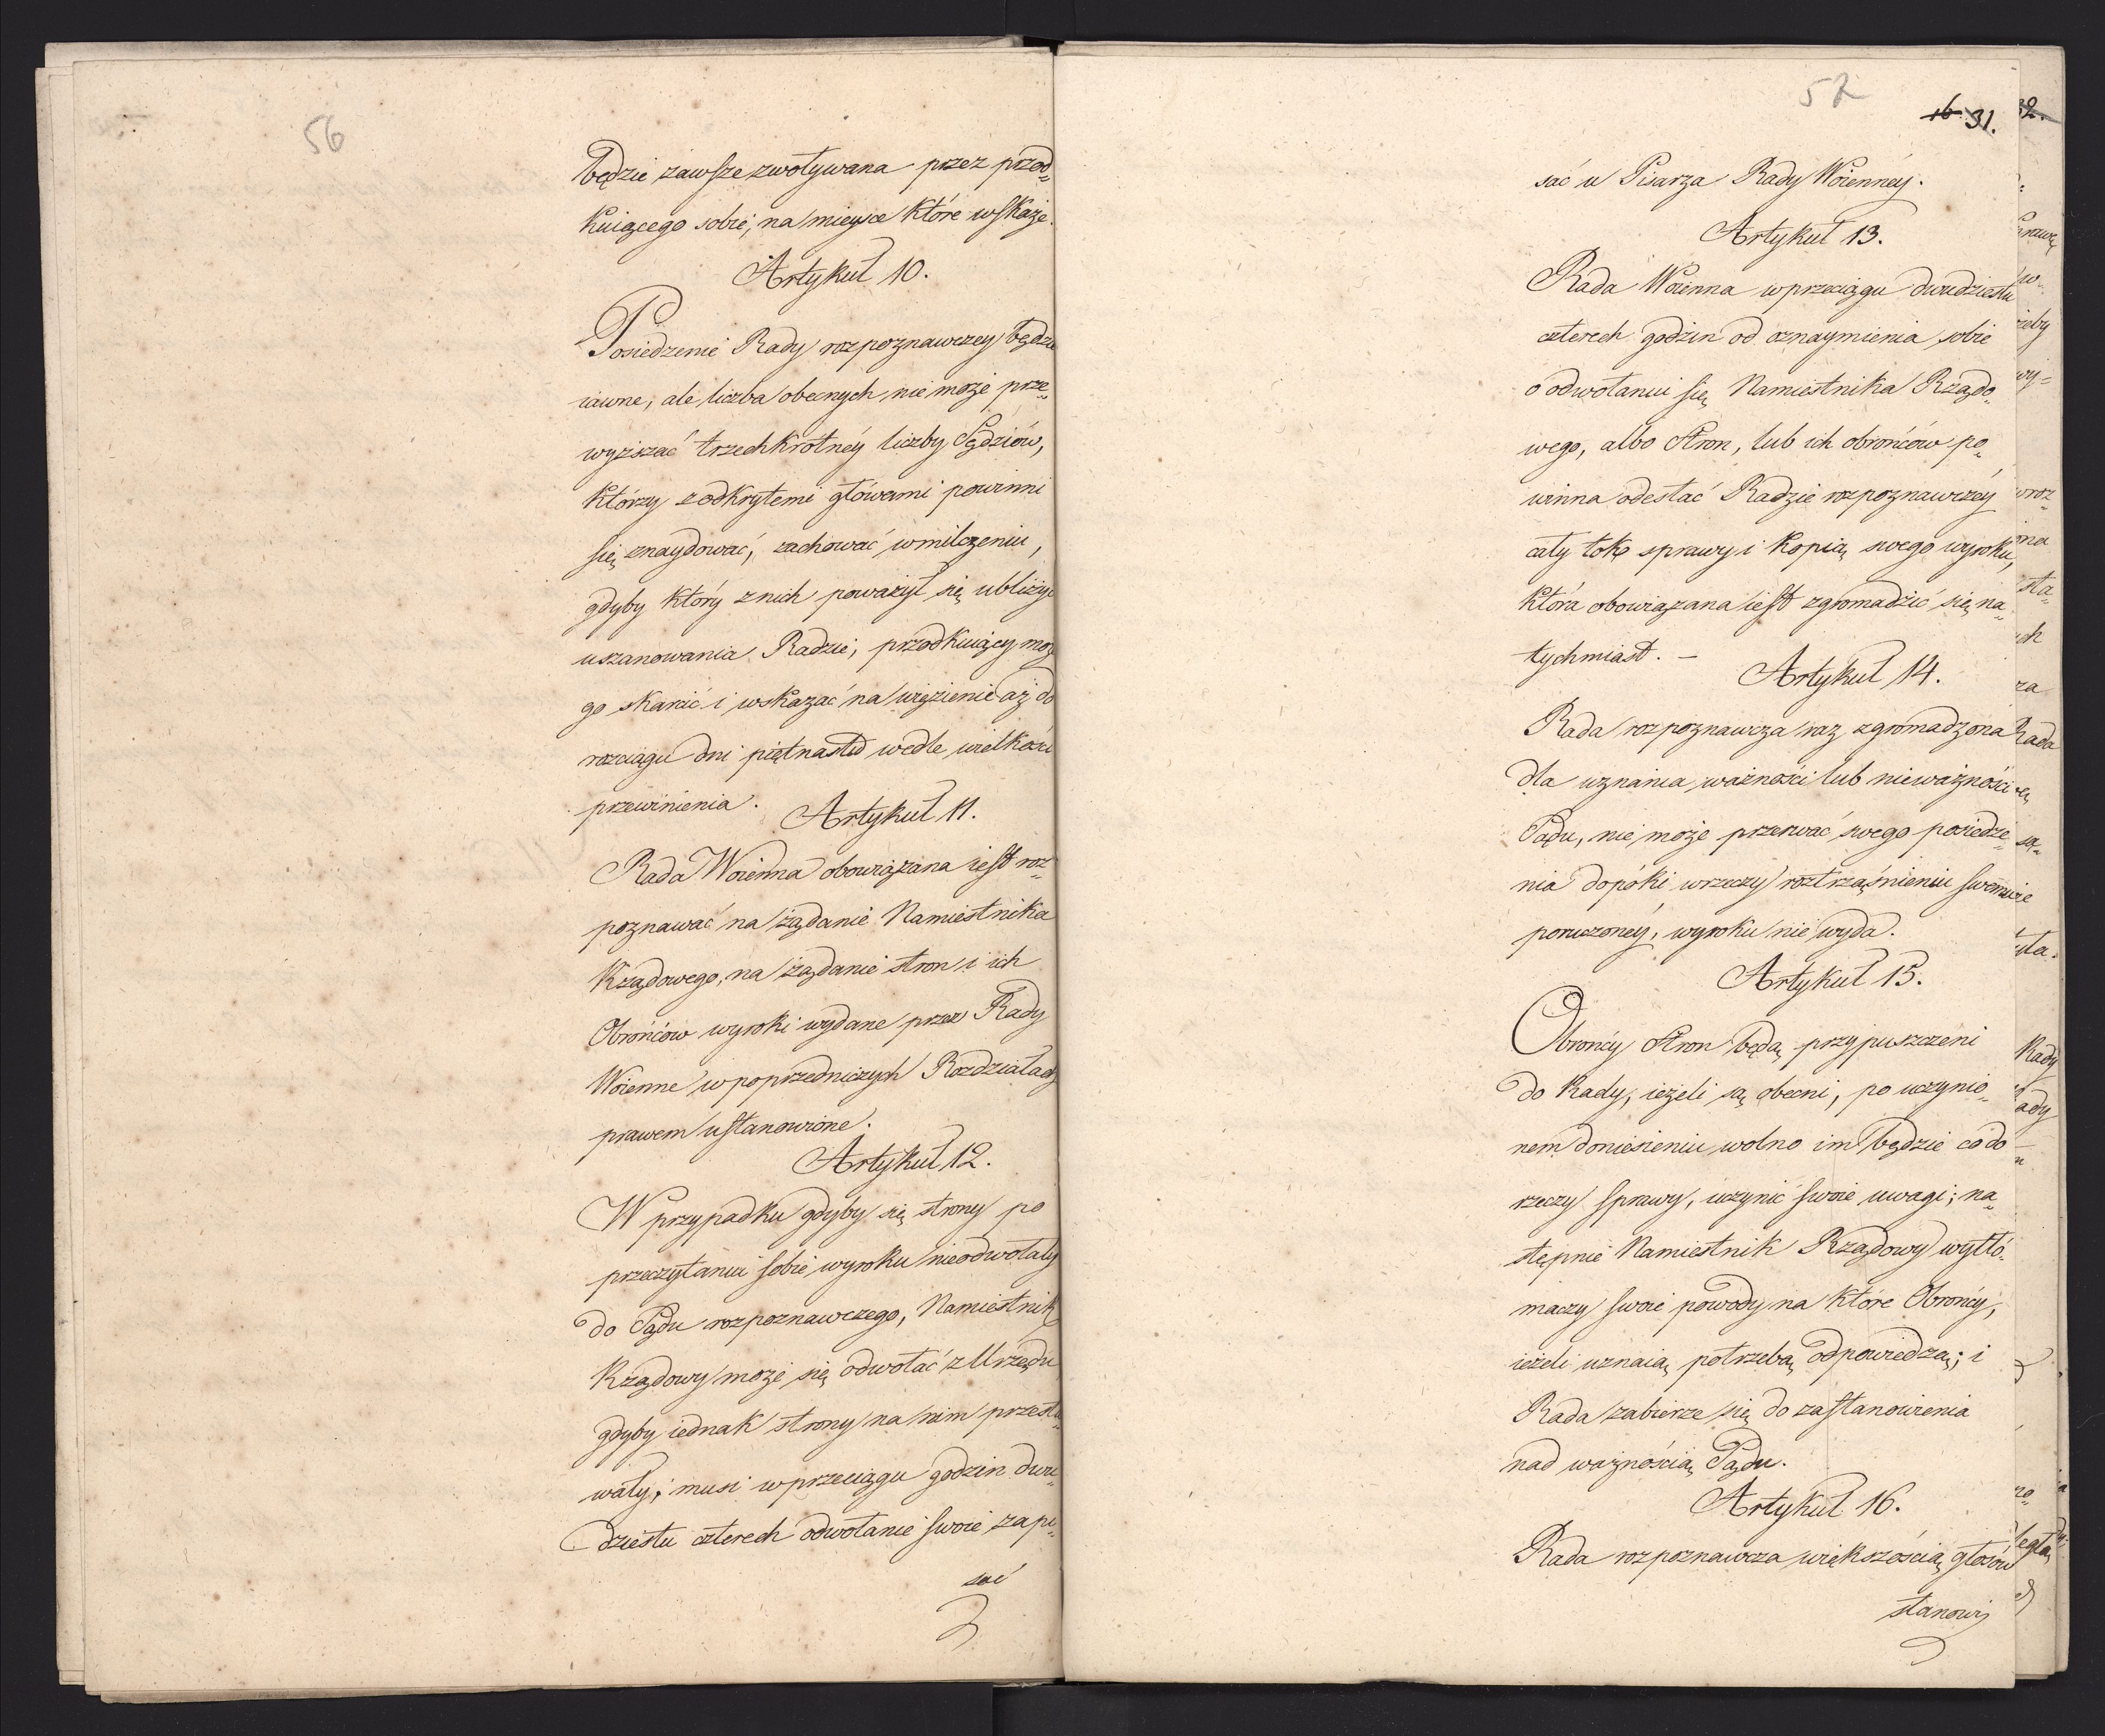 56
będzie zawsze zwoływana przez przod„
kuiącego sobie, na mieysce które wskaże.
Artykuł 10.
Posiedzenie Rady rozpoznawczey będzie
iawne, ale liczba obecnych nie może prze„
wyższać trzechkrotnéy liczby Sędziów,
którzy z odkrytemi głowami powinni
się znaydować, zachować w milczeniu,
gdyby który z nich poważył się ubliżyć
uszanowania Radzie, przodkuiący może
go skarcić i wskazać na więzienie aż do
rozciągu dni piętnastu wedle wielkości
przewinienia.
Artykuł 11.
Rada Woienna obowiązana iest roz„
poznawać na żądanie Namiestnika
Rządowego, na żądanie stron i ich
Obrońców wyroki wydane przez Rady
Woienne w poprzedniczych Rozdziałach
prawem ustanowione.
Artykuł 12.
W przypadku gdyby się strony po
przeczytaniu sobie wyroku nieodwołały
do Sądu rozpoznawczego, Namiestnik
Rządowy może się odwołać z Urzędu
gdyby iednak strony na nim przesta„
wały, musi w przeciągu godzin dwu„
dziestu czterech odwołanie swoie zapi„
sać
57
16 31.
sać u Pisarza Rady Woiennéy.
Artykuł 13.
Rada Woienna w przeciągu dwudziestu
czterech godzin od oznaymienia sobie
o odwołaniu się Namiestnika Rządo„
wego, albo Stron, lub ich obrońców po„
winna odesłać Radzie rozpoznawczéy
cały tok sprawy i kopią swego wyroku,
która obowiązana iest zgromadzić się na„
tychmiast. –
Artykuł 14.
Rada rozpoznawcza raz zgromadzona
dla uznania ważności lub nieważności
Sądu, nie może przerwać swego posiedze„
nia dopóki w rzeczy roztrząśnieniu swemu
poruczonéy, wyroku nie wyda.
Artykuł 15.
Obrońcy Stron będą przypuszczeni
do Rady, ieżeli są obecni, po uczynio„
nem doniesieniu wolno im będzie co do
rzeczy sprawy, uczynić swoie uwagi; na„
stępnie Namiestnik Rządowy wytłó„
maczy swoie powody na które Obrońcy,
ieżeli uznaią potrzebą odpowiedzą; i
Rada zabierze się do zastanowienia
nad ważnością Sądu.
Artykuł 16.
Rada rozpoznawcza większością głosów
stanowi